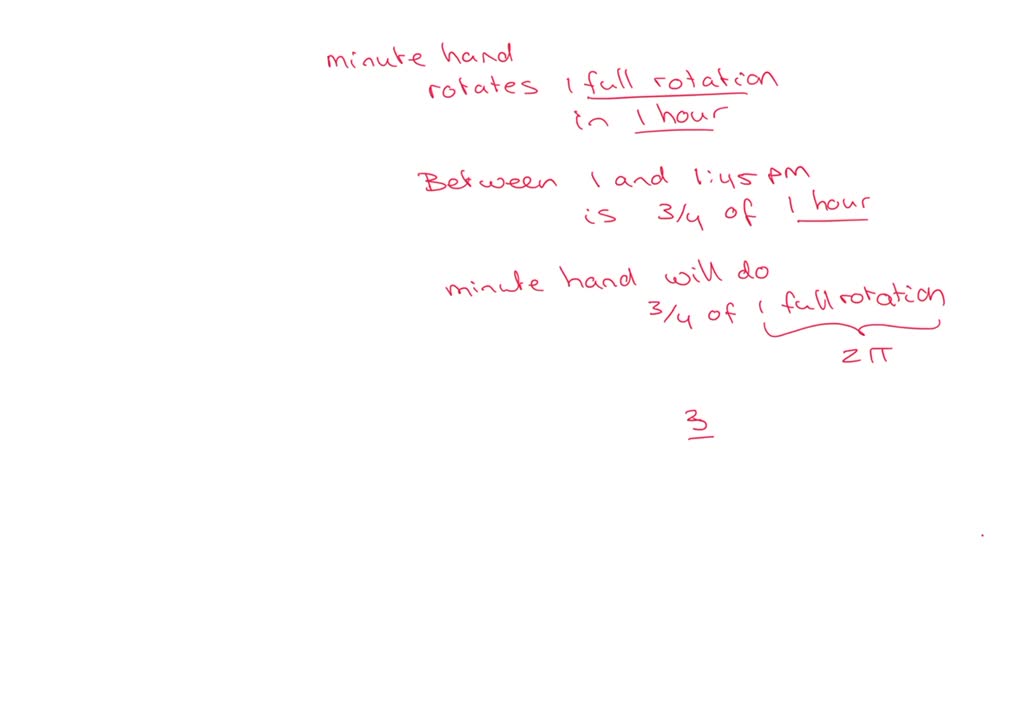 minute hand
rotates 1 full rotation
in 1 hour
Between 1 and 1:45 PM
is 3/4 of 1 hour
minute hand will do
3/4 of 1 full rotation
2π
3